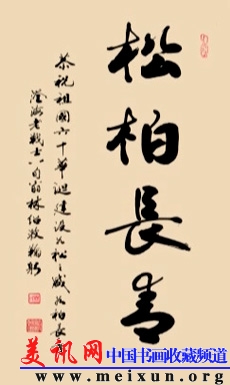 松柏長青
恭祝祖国六十華誕建设如松之盛如柏長青
老战士八旬翁林
美讯网
中国书画收藏频道
www.meixun.org